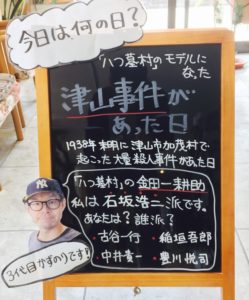 今日は何の日?
「八つ墓村」のモデルに
なった
津山事件が
あった日
1938年未明に津山市加茂村で
起こった大量殺人事件があった日
「八つ墓村」の金田一耕助
私は石坂浩二派です。
あなたは?誰派?
古谷一行・稲垣吾郎
中井貴一・豊川悦司
3代目かずのりです!